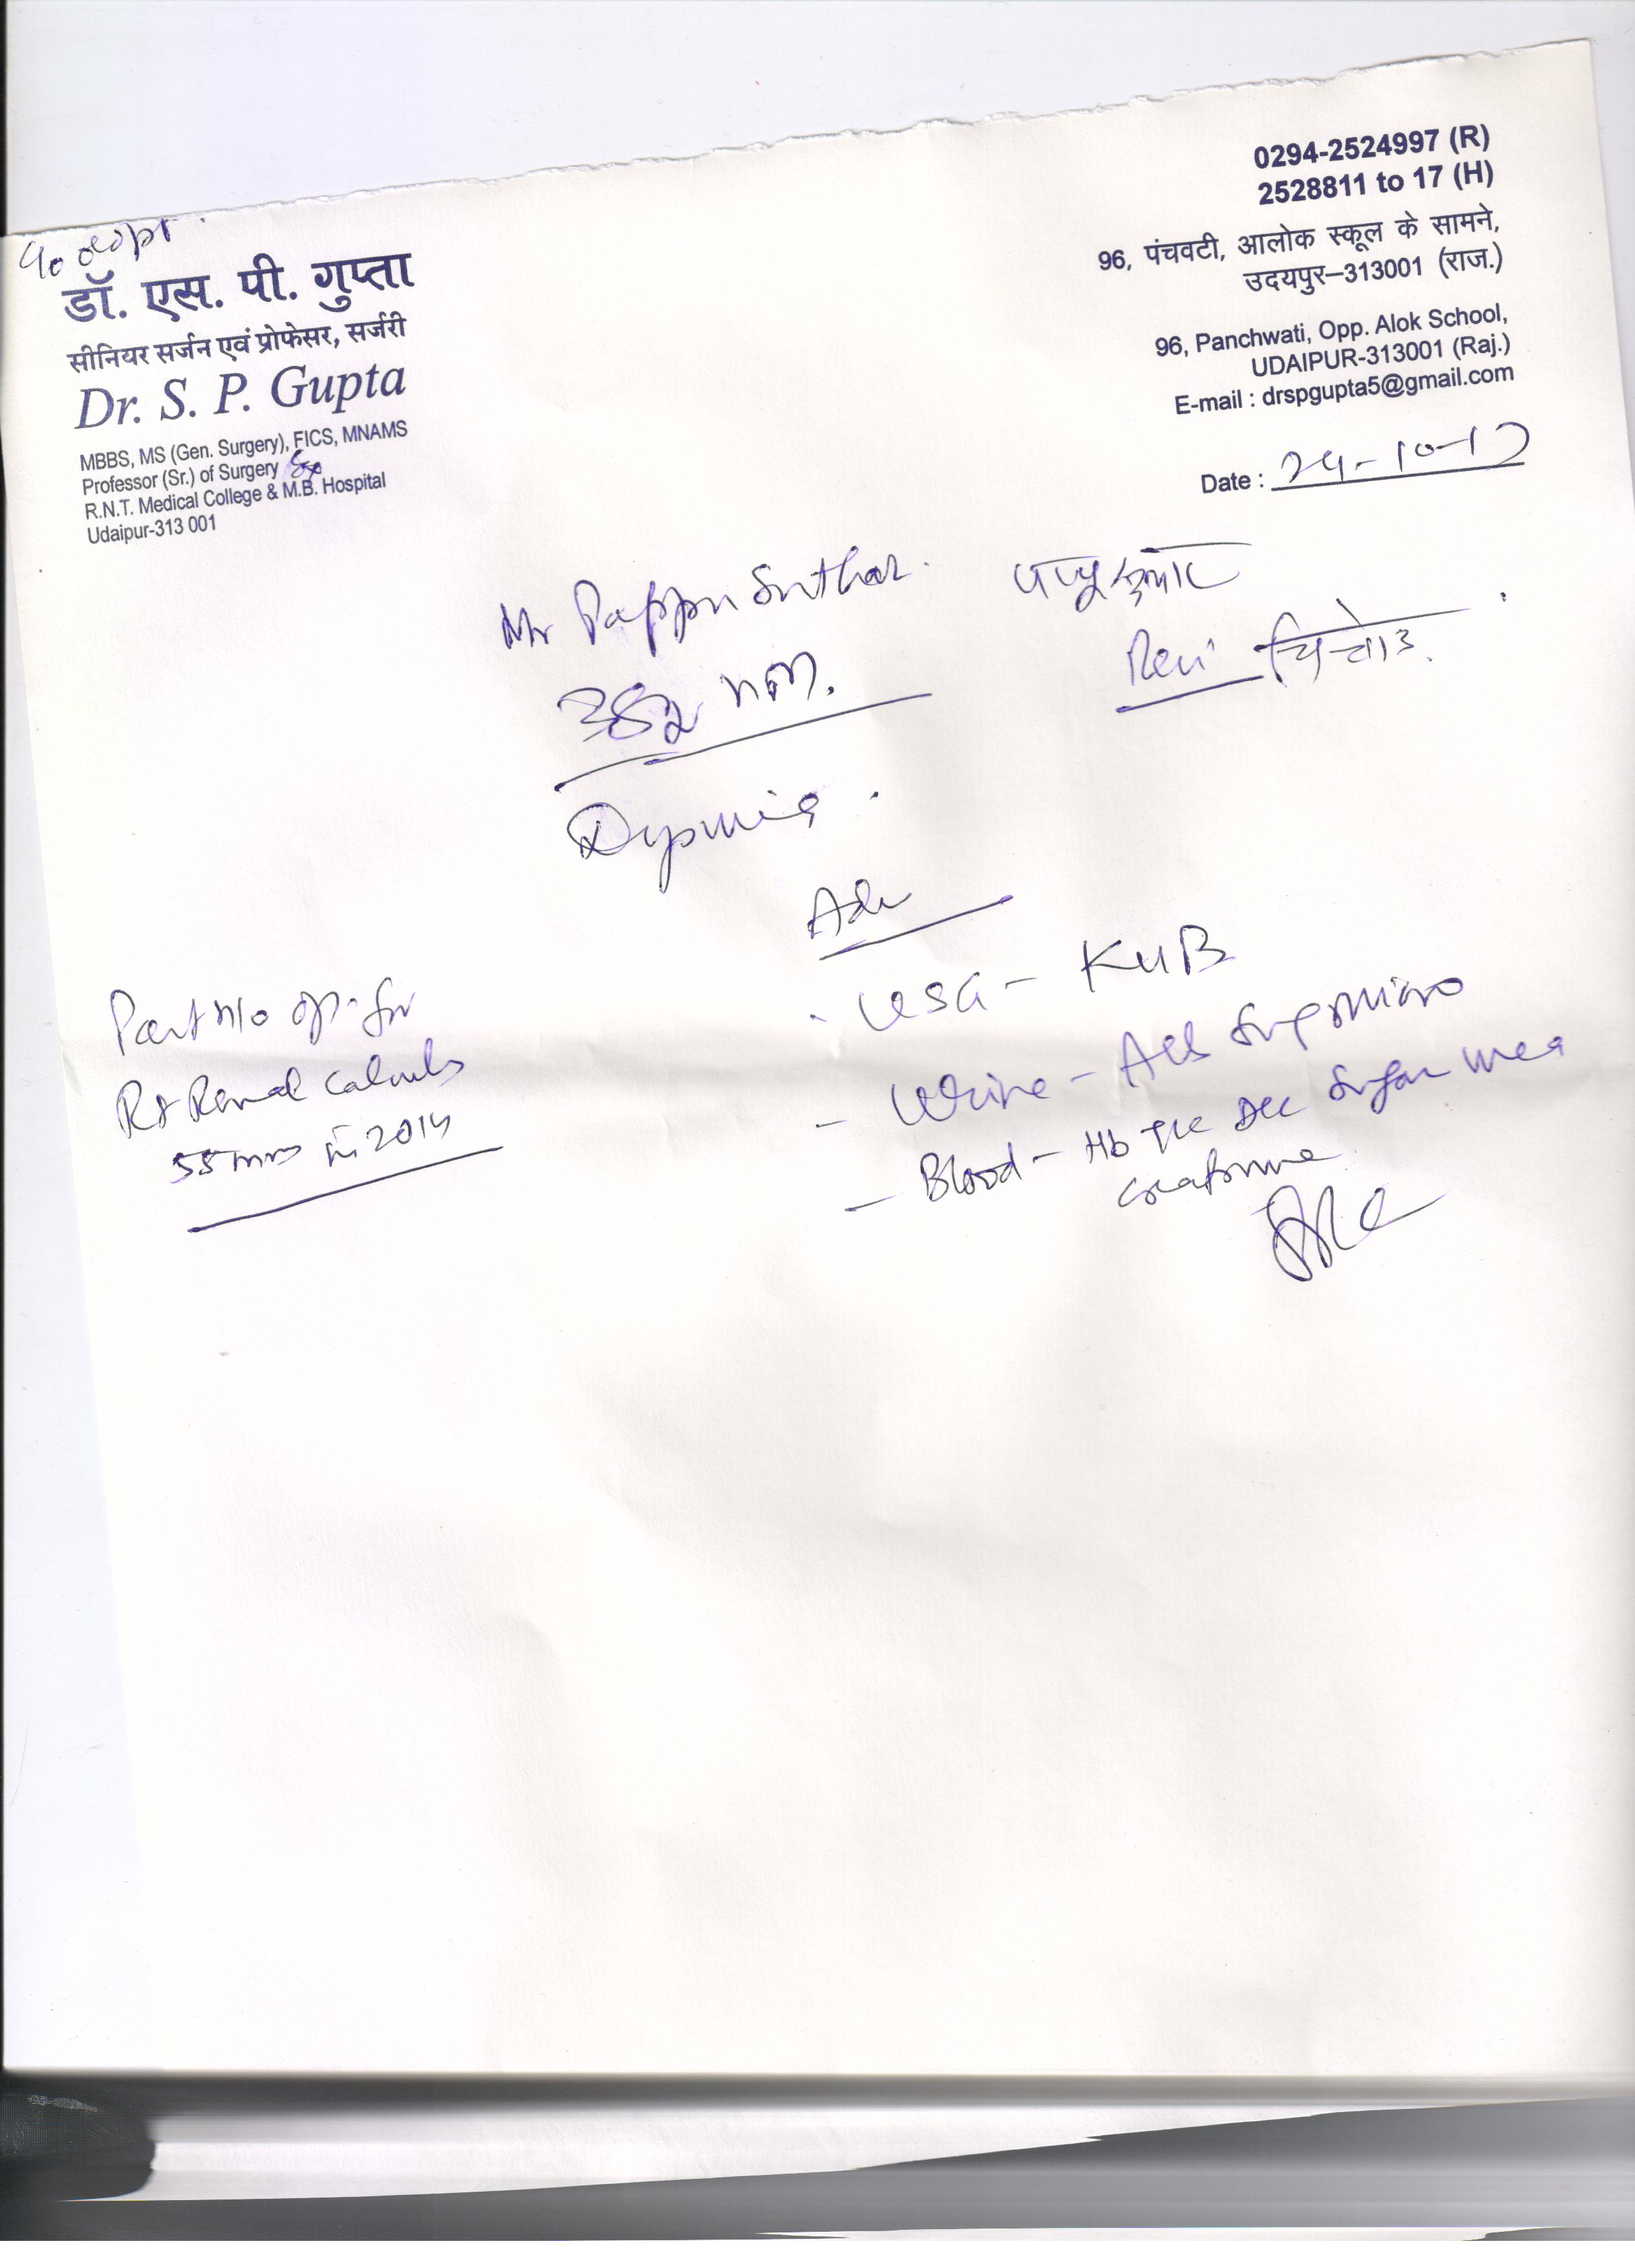 डॉ. एस. पी. गुप्ता
सीनियर सर्जन एवं प्रोफेसर, सर्जरी
Dr. S. P. Gupta
MBBS, MS (Gen. Surgery), FICS, MNAMS
Professor (Sr.) of Surgery
R.N.T. Medical College & M.B. Hospital
Udaipur-313 001
0294-2524997 (R)
2528811 to 17 (H)
96, पंचवटी, आलोक स्कूल के सामने,
उदयपुर–313001 (राज.)
96, Panchwati, Opp. Alok School,
UDAIPUR-313001 (Raj.)
E-mail : drspgupta5@gmail.com
Date : 24-10-17
Mr Pappu Suthar.
Adv
Past H/o op. for
Rt Renal Calculus
55 mm in 2014
- USG - KUB
- Urine - Alb Sug Micro
- Blood - Hb TLC DLC Sugar Urea
Creatinine